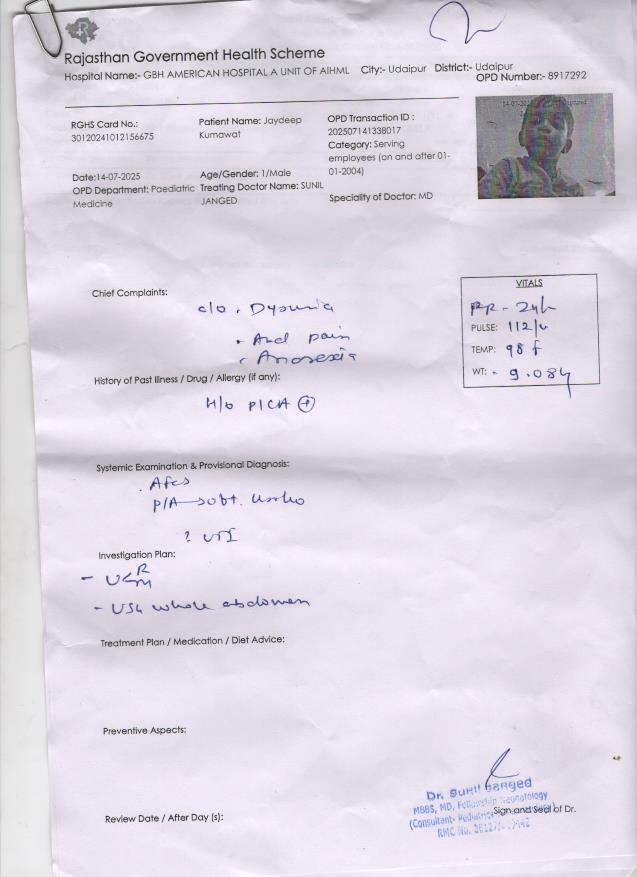 Rajasthan Government Health Scheme
Hospital Name:- GBH AMERICAN HOSPITAL A UNIT OF AIHML City:- Udaipur District:- Udaipur
OPD Number:- 8917292
RGHS Card No.:
30120241012156675
Patient Name: Jaydeep
Kumawat
OPD Transaction ID :
202507141338017
Category: Serving
employees (on and after 01-
01-2004)
Date:14-07-2025
OPD Department: Paediatric
Medicine
Age/Gender: 1/Male
Treating Doctor Name: SUNIL
JANGED
Speciality of Doctor: MD
Chief Complaints:
c/o . Dysuria
Abd pain
Anorexia
VITALS
RR - 24/
PULSE: 112/
TEMP: 98 f
WT: - 9.084
History of Past Illness / Drug / Allergy (if any):
H/o PICA +
Systemic Examination & Provisional Diagnosis:
P/A - soft.
? UTI
Investigation Plan:
- USG whole abdomen
Treatment Plan / Medication / Diet Advice:
Preventive Aspects:
Review Date / After Day (s):
Dr. Sunil Janged
MBBS, MD, Fellowship Neonatology
(Consultant- Pediatrics
RMC No.
Sign and Seal of Dr.